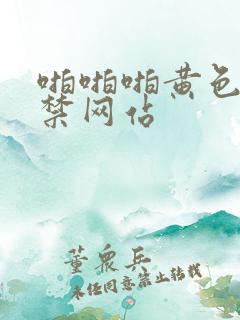 啪啪啪黄色
禁网站
董众兵
未经同意禁止转载